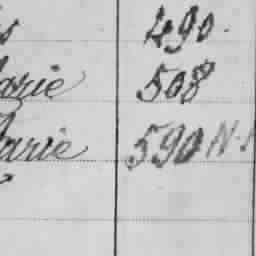 490.
arie 508
arie 590 N.